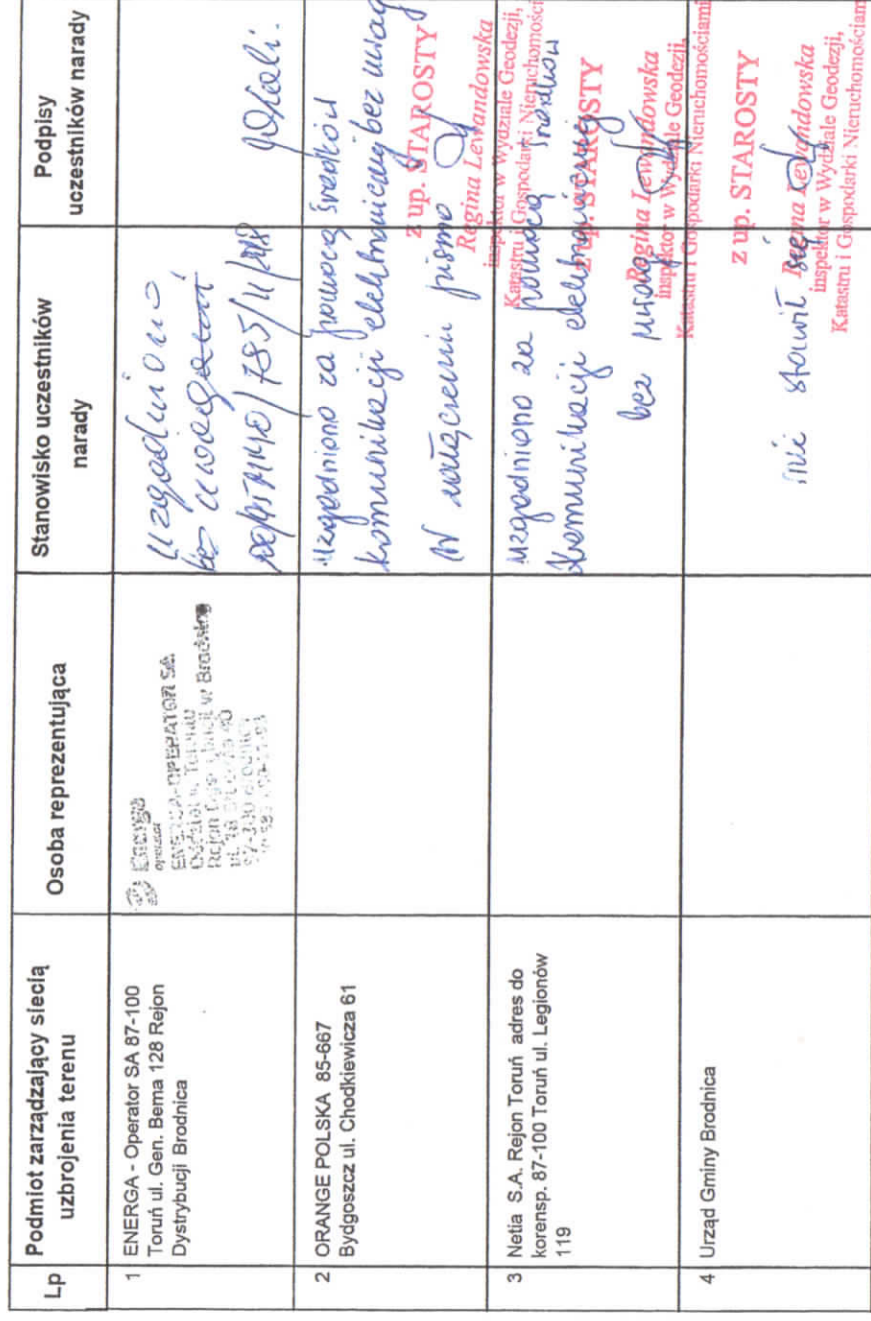 Lp
Podmiot zarządzający siecią
uzbrojenia terenu
Osoba reprezentująca
Stanowisko uczestników
narady
Podpisy
uczestników narady
1
ENERGA - Operator SA 87-100
Toruń ul. Gen. Bema 128 Rejon
Dystrybucji Brodnica
Energa
operator
ENERGA-OPERATOR SA
Uzgodniono
bez uwag
2
ORANGE POLSKA 85-667
Bydgoszcz ul. Chodkiewicza 61
uzgodniono za pomocą środków
komunikacji elektronicznej bez uwag
W załączeniu pismo
z up. STAROSTY
Regina Lewandowska
inspektor w Wydziale Geodezji,
Katastru i Gospodarki Nieruchomości
3
Netia S.A. Rejon Toruń adres do
korensp. 87-100 Toruń ul. Legionów
119
uzgodniono za pomocą środków
komunikacji elektronicznej
bez uwag
z up. STAROSTY
Regina Lewandowska
inspektor w Wydziale Geodezji,
Katastru i Gospodarki Nieruchomościami
4
Urząd Gminy Brodnica
nie stawił się
z up. STAROSTY
Regina Lewandowska
inspektor w Wydziale Geodezji,
Katastru i Gospodarki Nieruchomościam